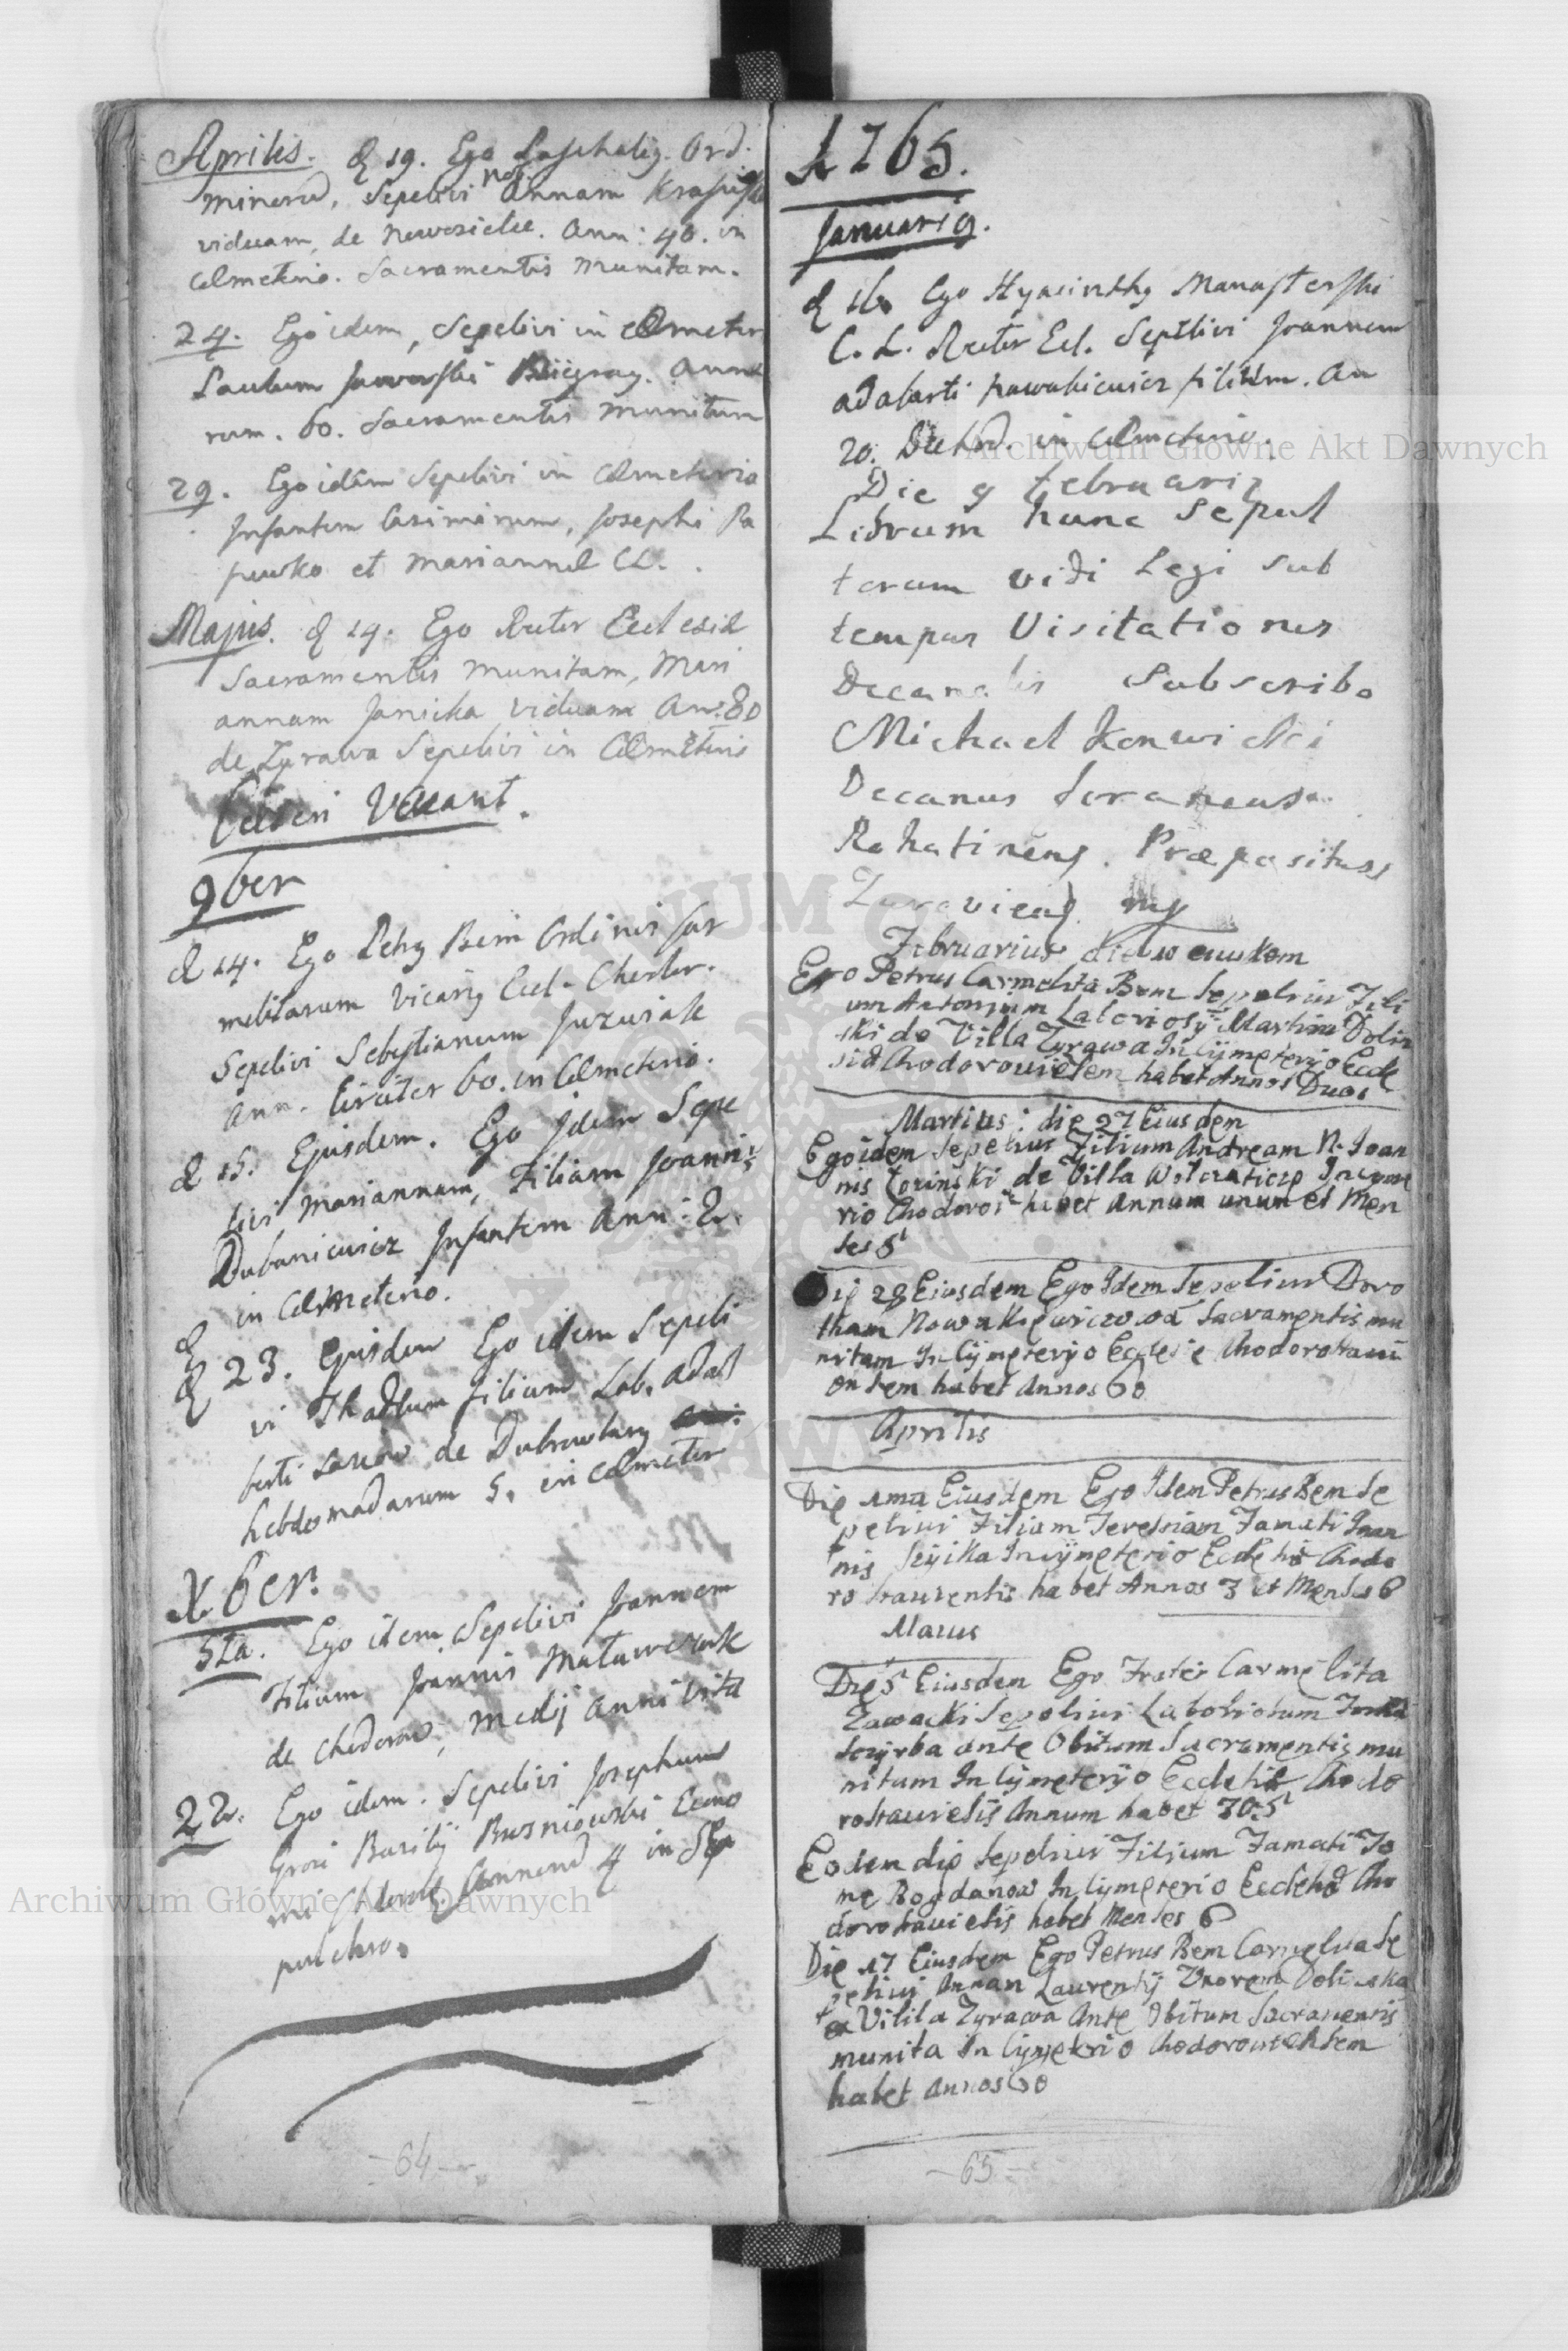 Aprilis. d 19. Ego Paschalis. Ord.
minorum, Sepelivi Nob. Annam
viduam, de Nowosielce. Ann: 40. in
Cœmeterio. Sacramentis munitam.
24. Ego idem, Sepelivi in Cœmeter
Paulum Jaworski Annu
rum. 60. Sacramentis munitum
29. Ego idem Sepelivi in Cœmeterio
Infantem Casimirum, Josephi Pa
puwko et Mariannæ CL.
Majus. d 19. Ego Rector Ecclesiæ
Sacramentis munitam, Mari
annam Janicka viduam An: 80
de Zyrawa Sepelivi in Cœmeterio
Cæteri Vacant.
9ber
d 14. Ego Petrus Bem Ordinis Car
melitarum Vicarius Eccl. Chodor.
Sepelivi Sebastianum Juzusiak
Ann. Circiter 60. in Cœmeterio.
d 15. Ejusdem. Ego Idem Sepe
livi Mariannam, Filiam Joannis
Dubaniewicz Infantem Ann: 2.
in Cœmeterio.
d
d 23. Ejusdem Ego idem Sepeli
vi Thadæum filium Lab. Adal
berti de
hebdomadarum 5. in Cœmeter
Xber.
5ta. Ego idem, Sepelivi Joannem
Filium Joannis Matawczuk
de Chodorow, medij anni vitæ
22. Ego idem. Sepelivi Josephum
Grosi Basilij Busniowski Econo
mi Annorum 4 in Se
pulchro.
-64-
1765.
Januarius.
d 16 Ego Hyacinthus Manasterski
C. L. Rector Ecl. Sepelivi Joannem
Adalberti Nowakiewicz filium. An
20. in Cœmeterio.
Die 9 Februarii
Librum hunc Sepul
torum vidi Legi sub
tempus Visitationis
Decanalis Subscribo
Michael Konwicki
Decanus Foraneus
Rohatinens. Præpositus
Zuraviens. mp
Februarius die
Ego Petrus Carmelita Bem Sepelivi Fili
um Antonium Laboriosi Martini Dolin
ski de Villa Zyrawa In Cymeterijo Eccle
siæ Chodoroviesem habet Annos Duos
Martius: die 27 Eiusdem
Ego idem Sepelivi Filium Andream N. Joan
nis Lozinski de Villa In Cyme
rio habet Annum unum et Men
ses 5
Die 28 Eiusdem Ego Idem Sepelivi Doro
tham Nowakiewiczowa Sacramentis mu
nitam In Cymeteryjo Ecclesie
habet Annos 60
Aprilis
Die 1ma Eiusdem Ego Idem Petrus Bem Se
pelivi Filiam Teressiam Famati Joan
nis In cymeterio Ecclesiæ Chodo
rostauientis habet Annos 3 et Menses 6
Maius
Die 5 Eiusdem Ego Frater Carmelita
Zawacki Sepelivi Laboriosum
Scyrba ante Obitum Sacramentis mu
nitum In Cymeteryjo Ecclesiæ Chodo
rostauiesis Annum habet 70.5
Eodem die Sepelivi Filium Famati Jo
ne Bogdanow In Cymeterio Ecclesiæ Cho
dorostauiesis habet Menses 6
Die 17 Eiusdem Ego Petrus Bem Carmelita Se
pelivi Annam Laurentij Uxorem Dolinska
ex Vilila Zyrawa Ante Obitum Sacramentis
munita In Cymeterio
habet Annos 60
-65-
Archiwum Główne Akt Dawnych
Archiwum Główne Akt Dawnych